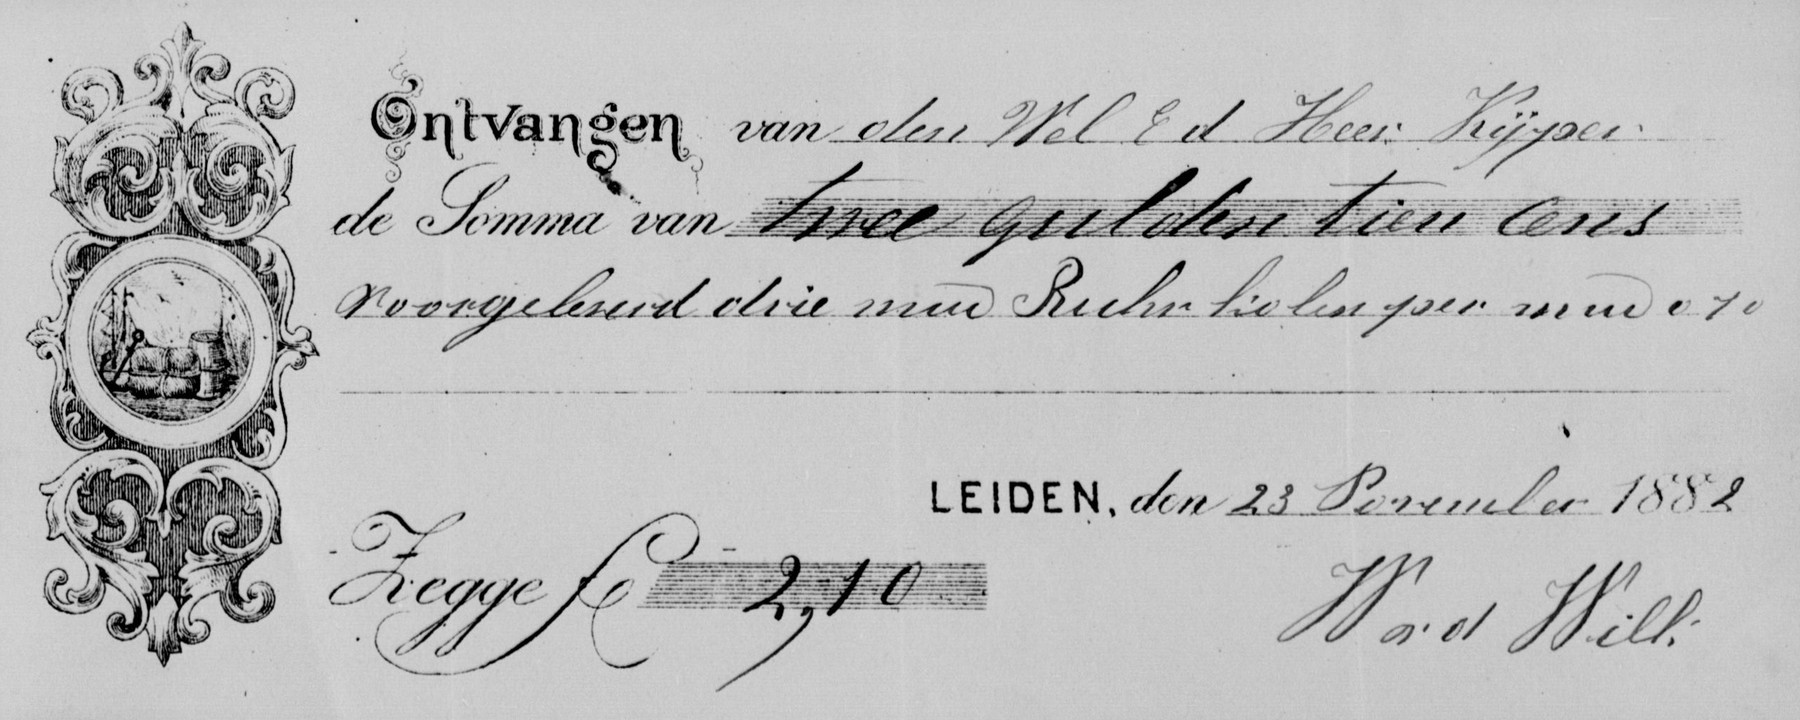 Ontvangen van den Wel Ed Heer Kÿper
de Somma van twee gulden tien cens
voorgeleverd drie mud Ruhr kolen per mud 0 70
LEIDEN, den 23 November 1882
Zegge f 2,10
W v d Will.